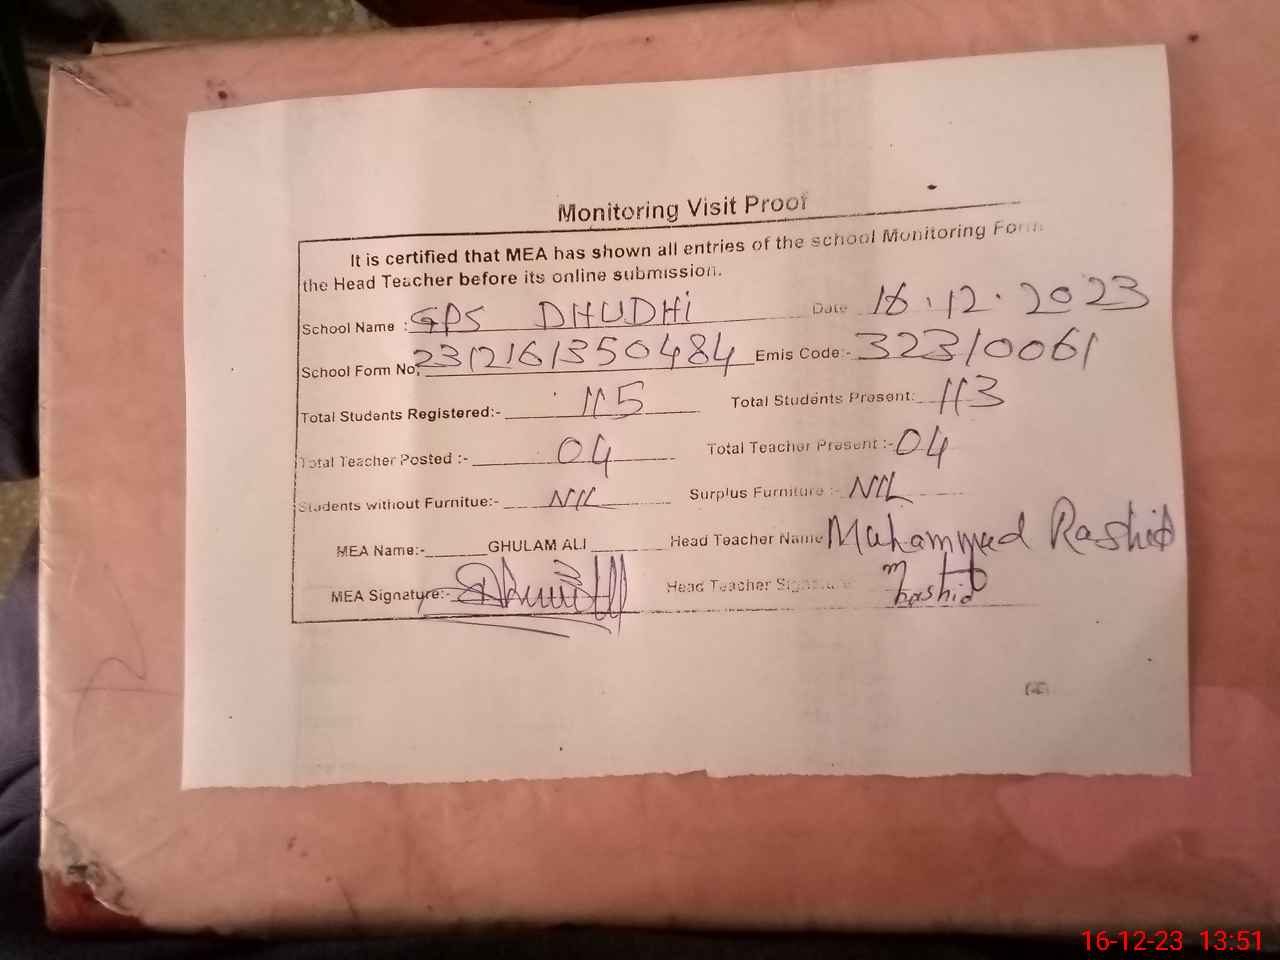 Monitoring Visit Proof
It is certified that MEA has shown all entries of the school Monitoring Form
the Head Teacher before its online submission.
School Name : GPS DHUDHi Date 16.12.2023
School Form No: 2312161350484 Emis Code:- 32310061
Total Students Registered:- 115 Total Students Present: 113
Total Teacher Posted :- 04 Total Teacher Present :- 04
Students without Furnitue:- NIL Surplus Furniture :- NIL
MEA Name:- GHULAM ALI Head Teacher Name Muhammad Rashid
MEA Signature:- Head Teacher Signature M Rashid
16-12-23 13:51